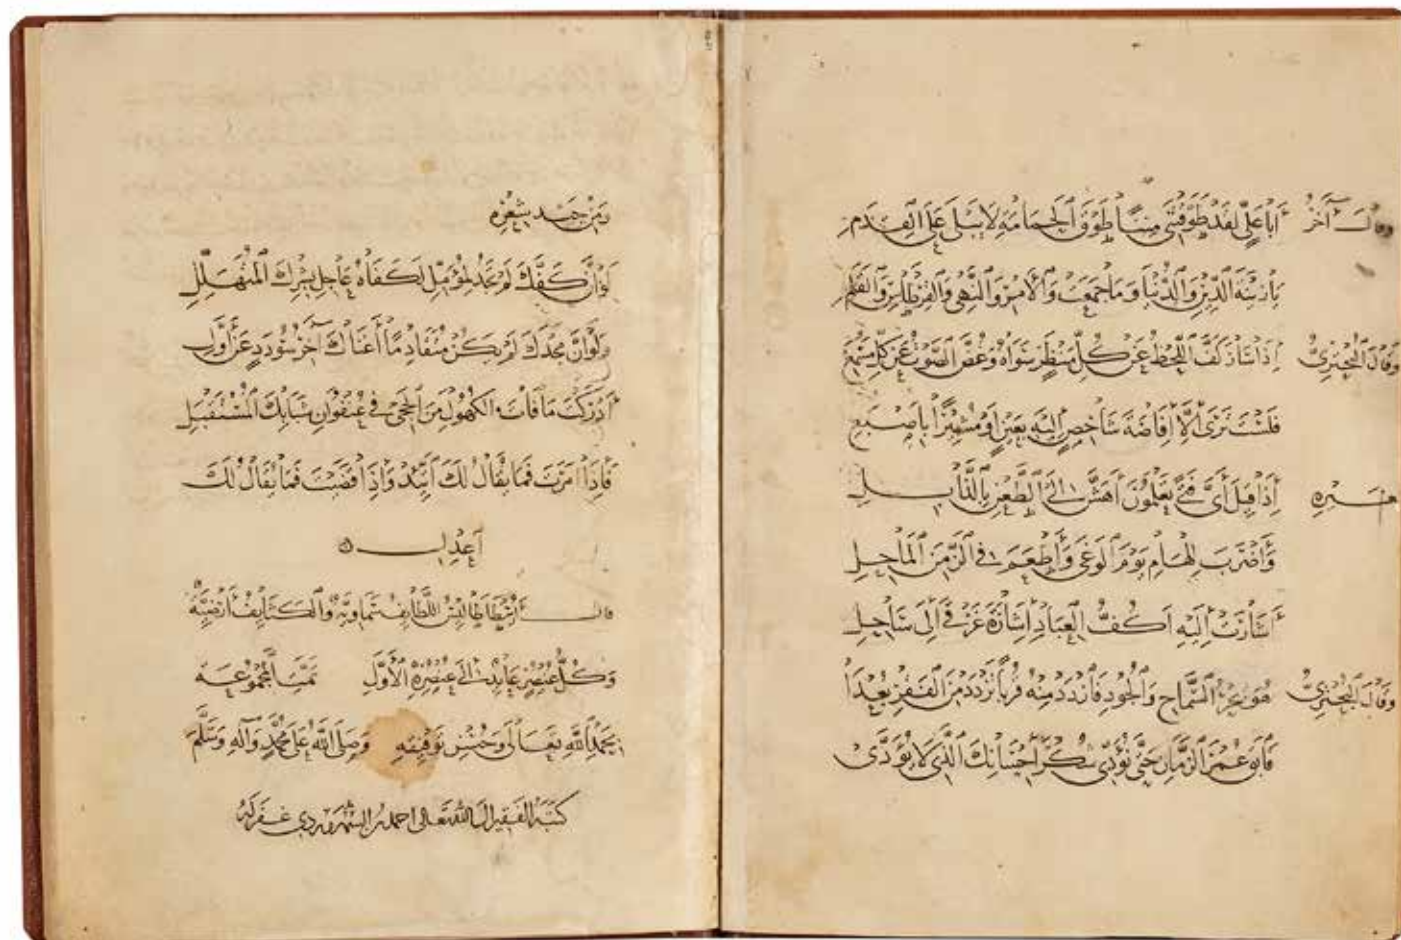 وقال آخر أبا علي لقد طوقتني مننا طوق الحمامة لا يبلى على القدم
يا زينة الدين والدنيا وما جمعت والأمر والنهي والقرطاس والقلم
وقال البحتري إذا سار كف اللحظ عن كل منظر سواه وغض الصوت عن كل مسمع
فلست ترى إلا إفاضة شاخص إليه بعين أو مشيرا بإصبع
غيره إذا قيل أي فتى يعلمون أهش إلى الطعن بالذابل
وأضرب للهام يوم الوغى وأطعم في الزمن الماحل
أشارت إليه أكف العباد إشارة غرقى إلى ساحل
وقال البحتري هو بحر السماح والجود فازدد منه قربا تزدد من الفقر بعدا
فابق عمر الزمان حتى نؤدي شكر إحسانك الذي لا يؤدى
ومن جيد شعره
لو أن كفك لم تجد لمؤمل لكفاه عاجل بشرك المتهلل
ولو أن مجدك لم يكن متقادما أغناك آخر سؤدد عن أول
أدركت ما فات الكهول من الحجى في عنفوان شبابك المستقبل
فإذا أمرت فما يقال لك اتئد وإذا قضيت فما يقال لك
اعدل
قال اللطايف سماوية والكثايف أرضية
وكل عنصر عايد إلى عنصره الأول تمت المجموعة
بحمد الله تعالى وحسن توفيقه وصلى الله على محمد وآله وسلم
كتبه الفقير إلى الله تعالى احمد بن السهروردي غفر له